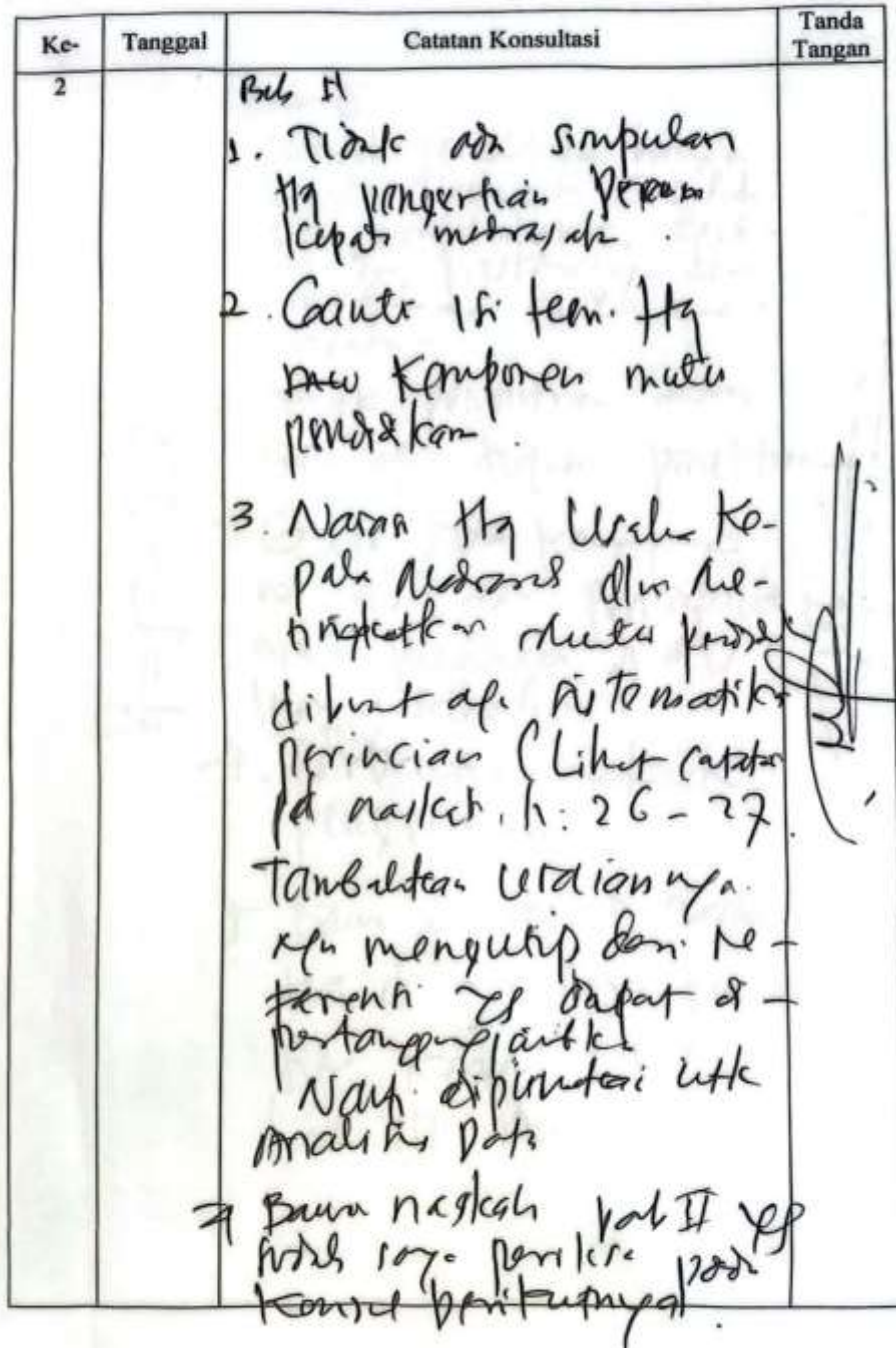 Ke- Tanggal Catatan Konsultasi Tanda Tangan
2
Bab II
1. Tidak ada simpulan
ttg pengertian peran
kepala madrasah.
2. Ganti isi teori ttg
komponen mutu
pendidikan.
3. Narasi ttg Usaha Ke-
pala Madrasah dlm Me-
ningkatkan mutu pendidik
dibuat dgn sistematika
perincian (Lihat catatan
pd naskah. h: 26 - 27
Tambahkan uraiannya
dgn mengutip dari Re-
ferensi yg dapat di-
pertanggungjawabk
Nanti utk
Analisis Data
Bawa naskah bab II yg
sudah saya periksa pada
konsul berikutnya.